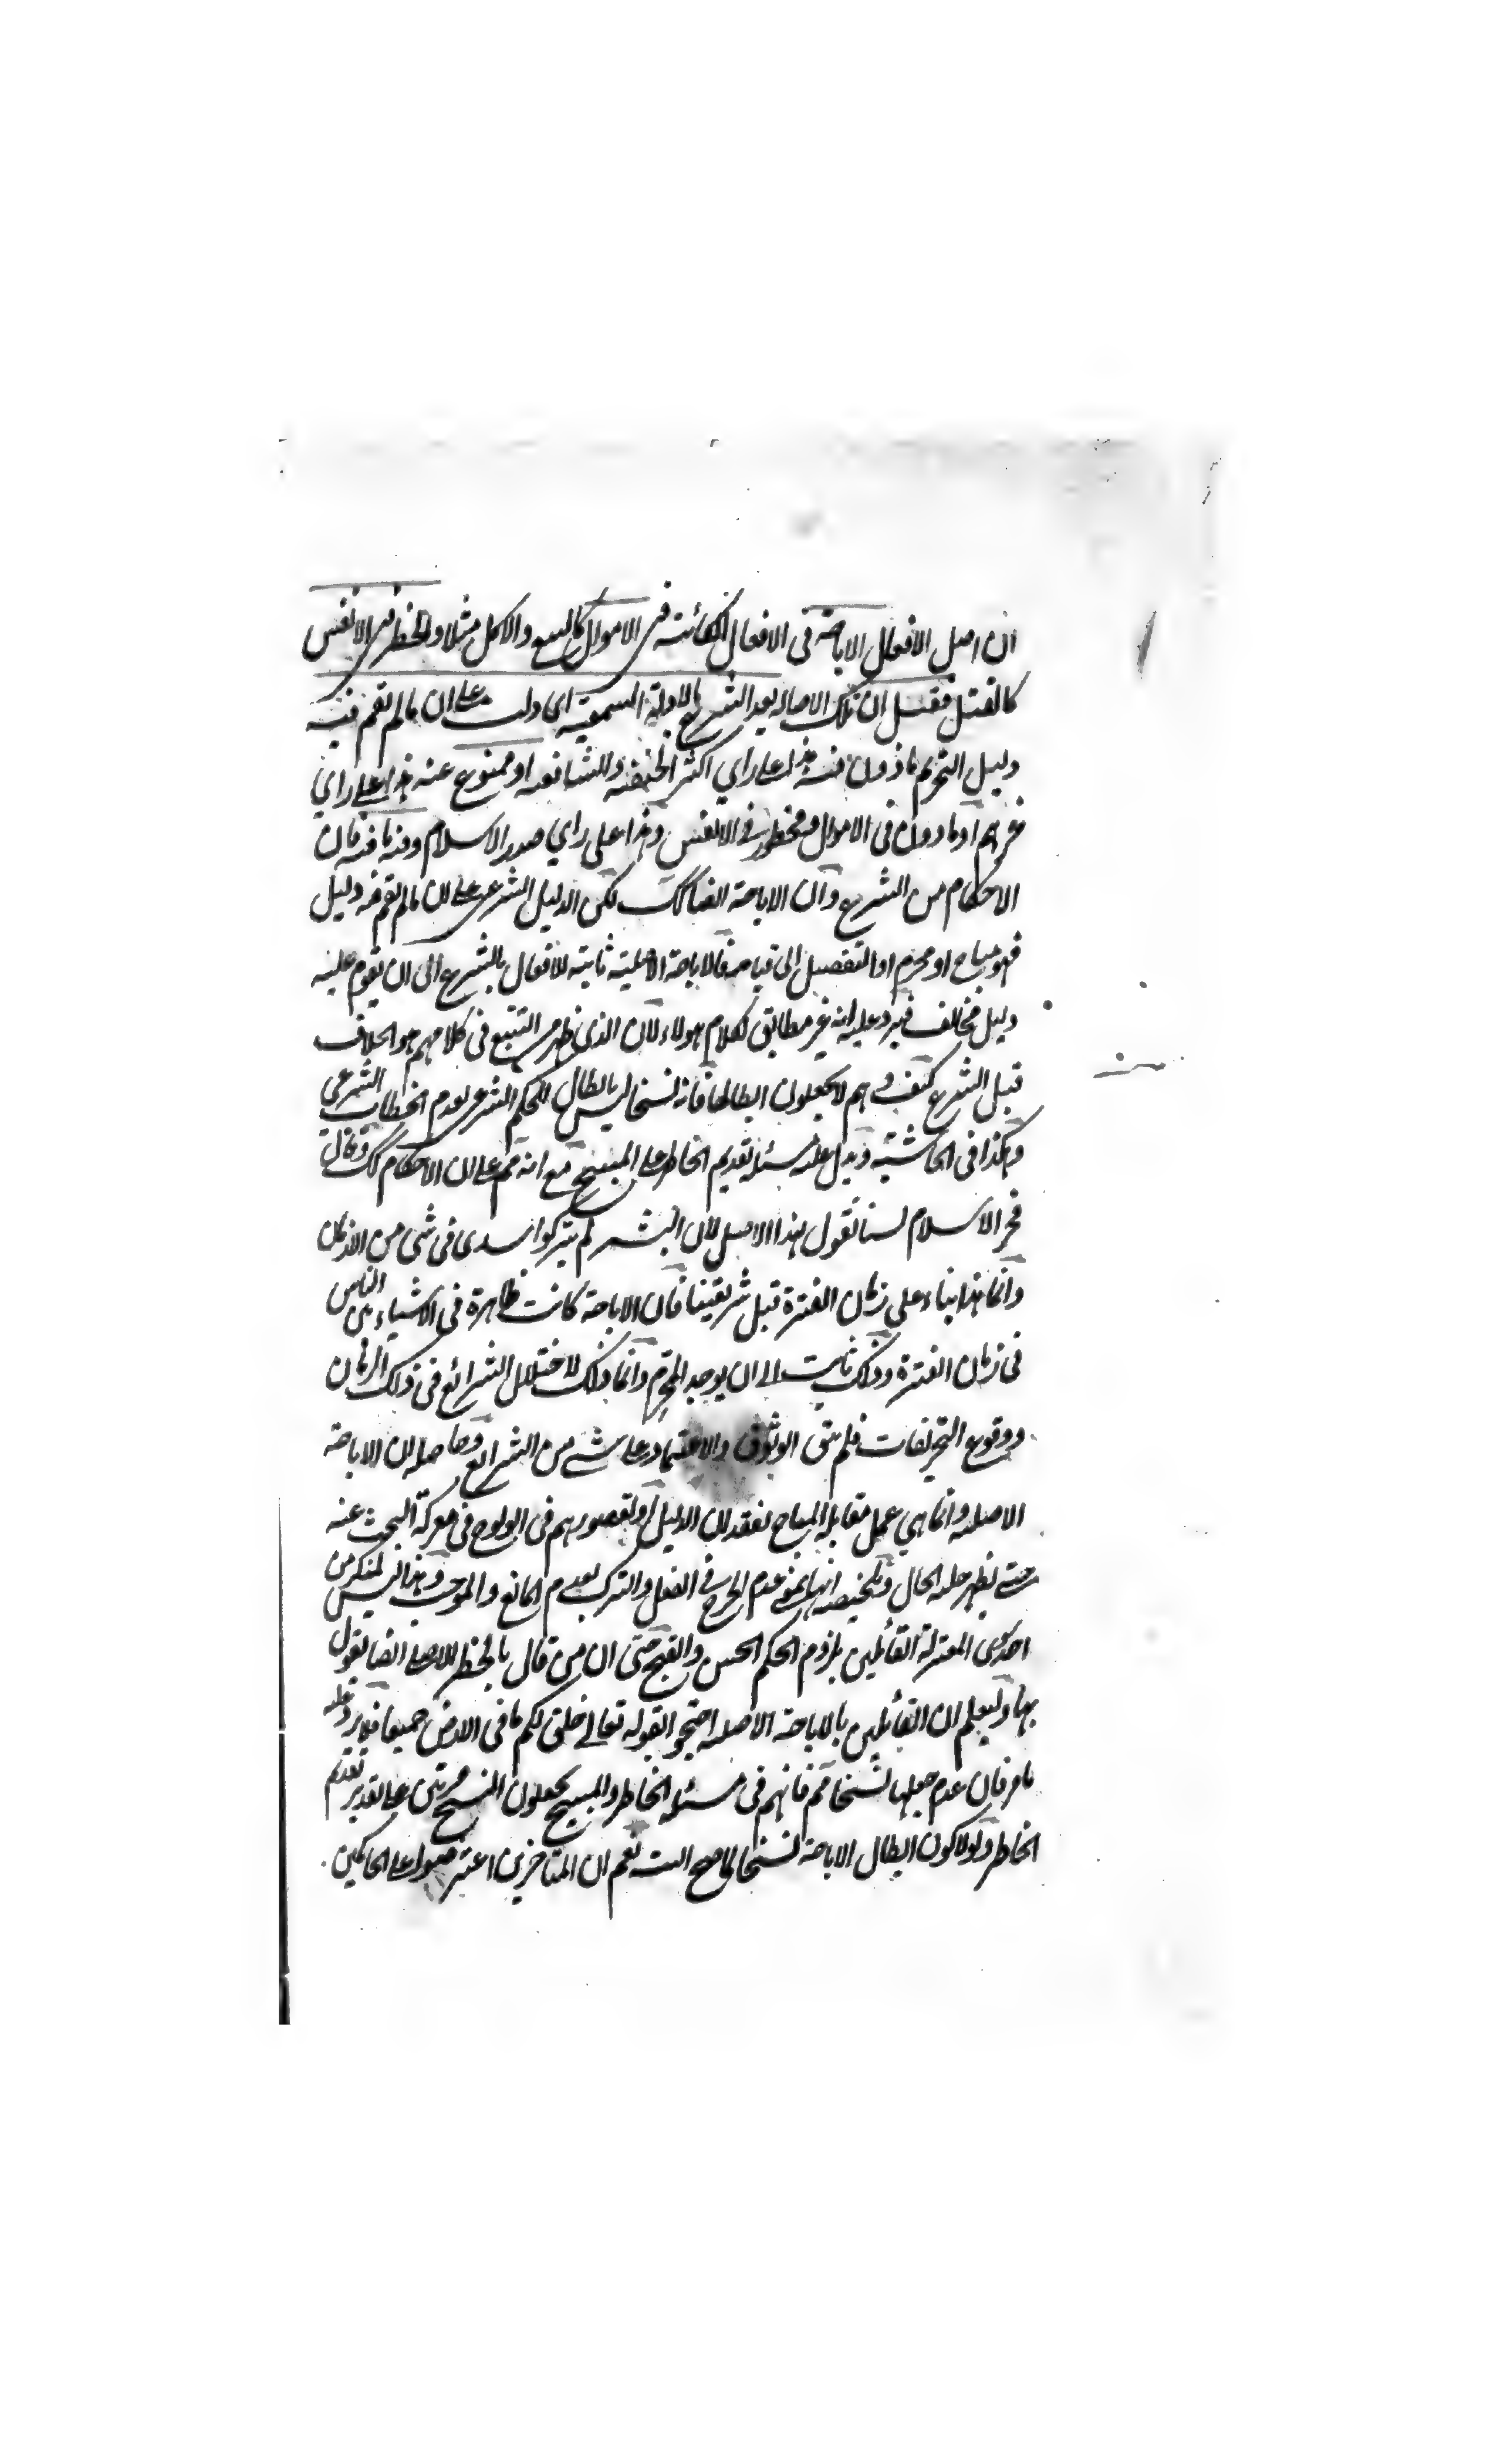 ان اصل الافعال الاباحة فى الافعال الكائنة فى الاموال كالبيع والاكل مثلا والحظر فى الانفس
كالقتل فقيل ان تلك الاصالة بعد الشرع بالادلة السمعية اى دلت على ان ما لم تقم فيه
دليل التحريم ماذون فيه هذا على راي اكثر الحنفية والشافعية او ممنوع عنه هذا على راي
غيرهم او ماذون فى الاموال ومحظور فى الانفس وهذا على راي صدر الاسلام وفيه ما فيه فان
الاحكام من الشرع وان الاباحة ايضا كك لكن الدليل الشرعي على ان ما لم تقم فيه دليل
فهو مباح او محرم او التفصيل الى قيامه فالاباحة الاصلية ثابتة للافعال بالشرع الى ان تقوم عليه
دليل مخالف فيه وعليه انه غير مطابق لكلام هولاء لان الذى ظهر من التتبع فى كلامهم هو الخلاف
قبل الشرع كيف وهم لا يجعلون ابطالها فانه نسخا ليس بابطال للحكم الشرعى لعدم الخطاب الشرعي
وهكذا فى الحاشية ويدل عليه مسئلة تقديم الحاظر على المبيح مع انه مر على ان الاحكام كك وقال
فخر الاسلام لسنا نقول بهذا الاصل لان البشر لم يتركوا سدى فى شئ من الازمان
وانما هذا بناء على زمان الفترة قبل شريعتنا فان الاباحة كانت ظاهرة فى الاشياء بين الناس
فى زمان الفترة وذلك ثابت الى ان يوجد المحرم وانما ذلك لاختلال الشرائع فى ذلك الزمان
ووقوع التحريفات فلم يبق الوثوق والاعتماد على شئ من الشرائع وحاصله ان الاباحة
الاصلية وانما هي عمل مقابلة المباح لفقدان الدليل ولقصورهم فى الولوج فى معركة البحث عنه
حتى يظهر جلية الحال وتلخيصه انها بمعنى عدم الحرج فى الفعل والترك لعدم المانع والموجب وهذا ليس لمنكر من
احد سوى المعتزلة القائلين بلزوم الحكم الحسن والقبح حتى ان من قال بالحظر الاصلى ايضا يقول
بها وليعلم ان القائلين بالاباحة الاصلية احتجوا بقوله تعالى خلق لكم ما فى الارض جميعا فيرد عليه
ما مر فان عدم جعلها نسخا ثم فانهم فى مسئلة الحاظر والمبيح يجعلون النسخ مرتين على تقدير تقديم
الحاظر ولولا كون ابطال الاباحة نسخا لما صح البتة نعم ان المتاخرين اعترضوا على الحاكمين